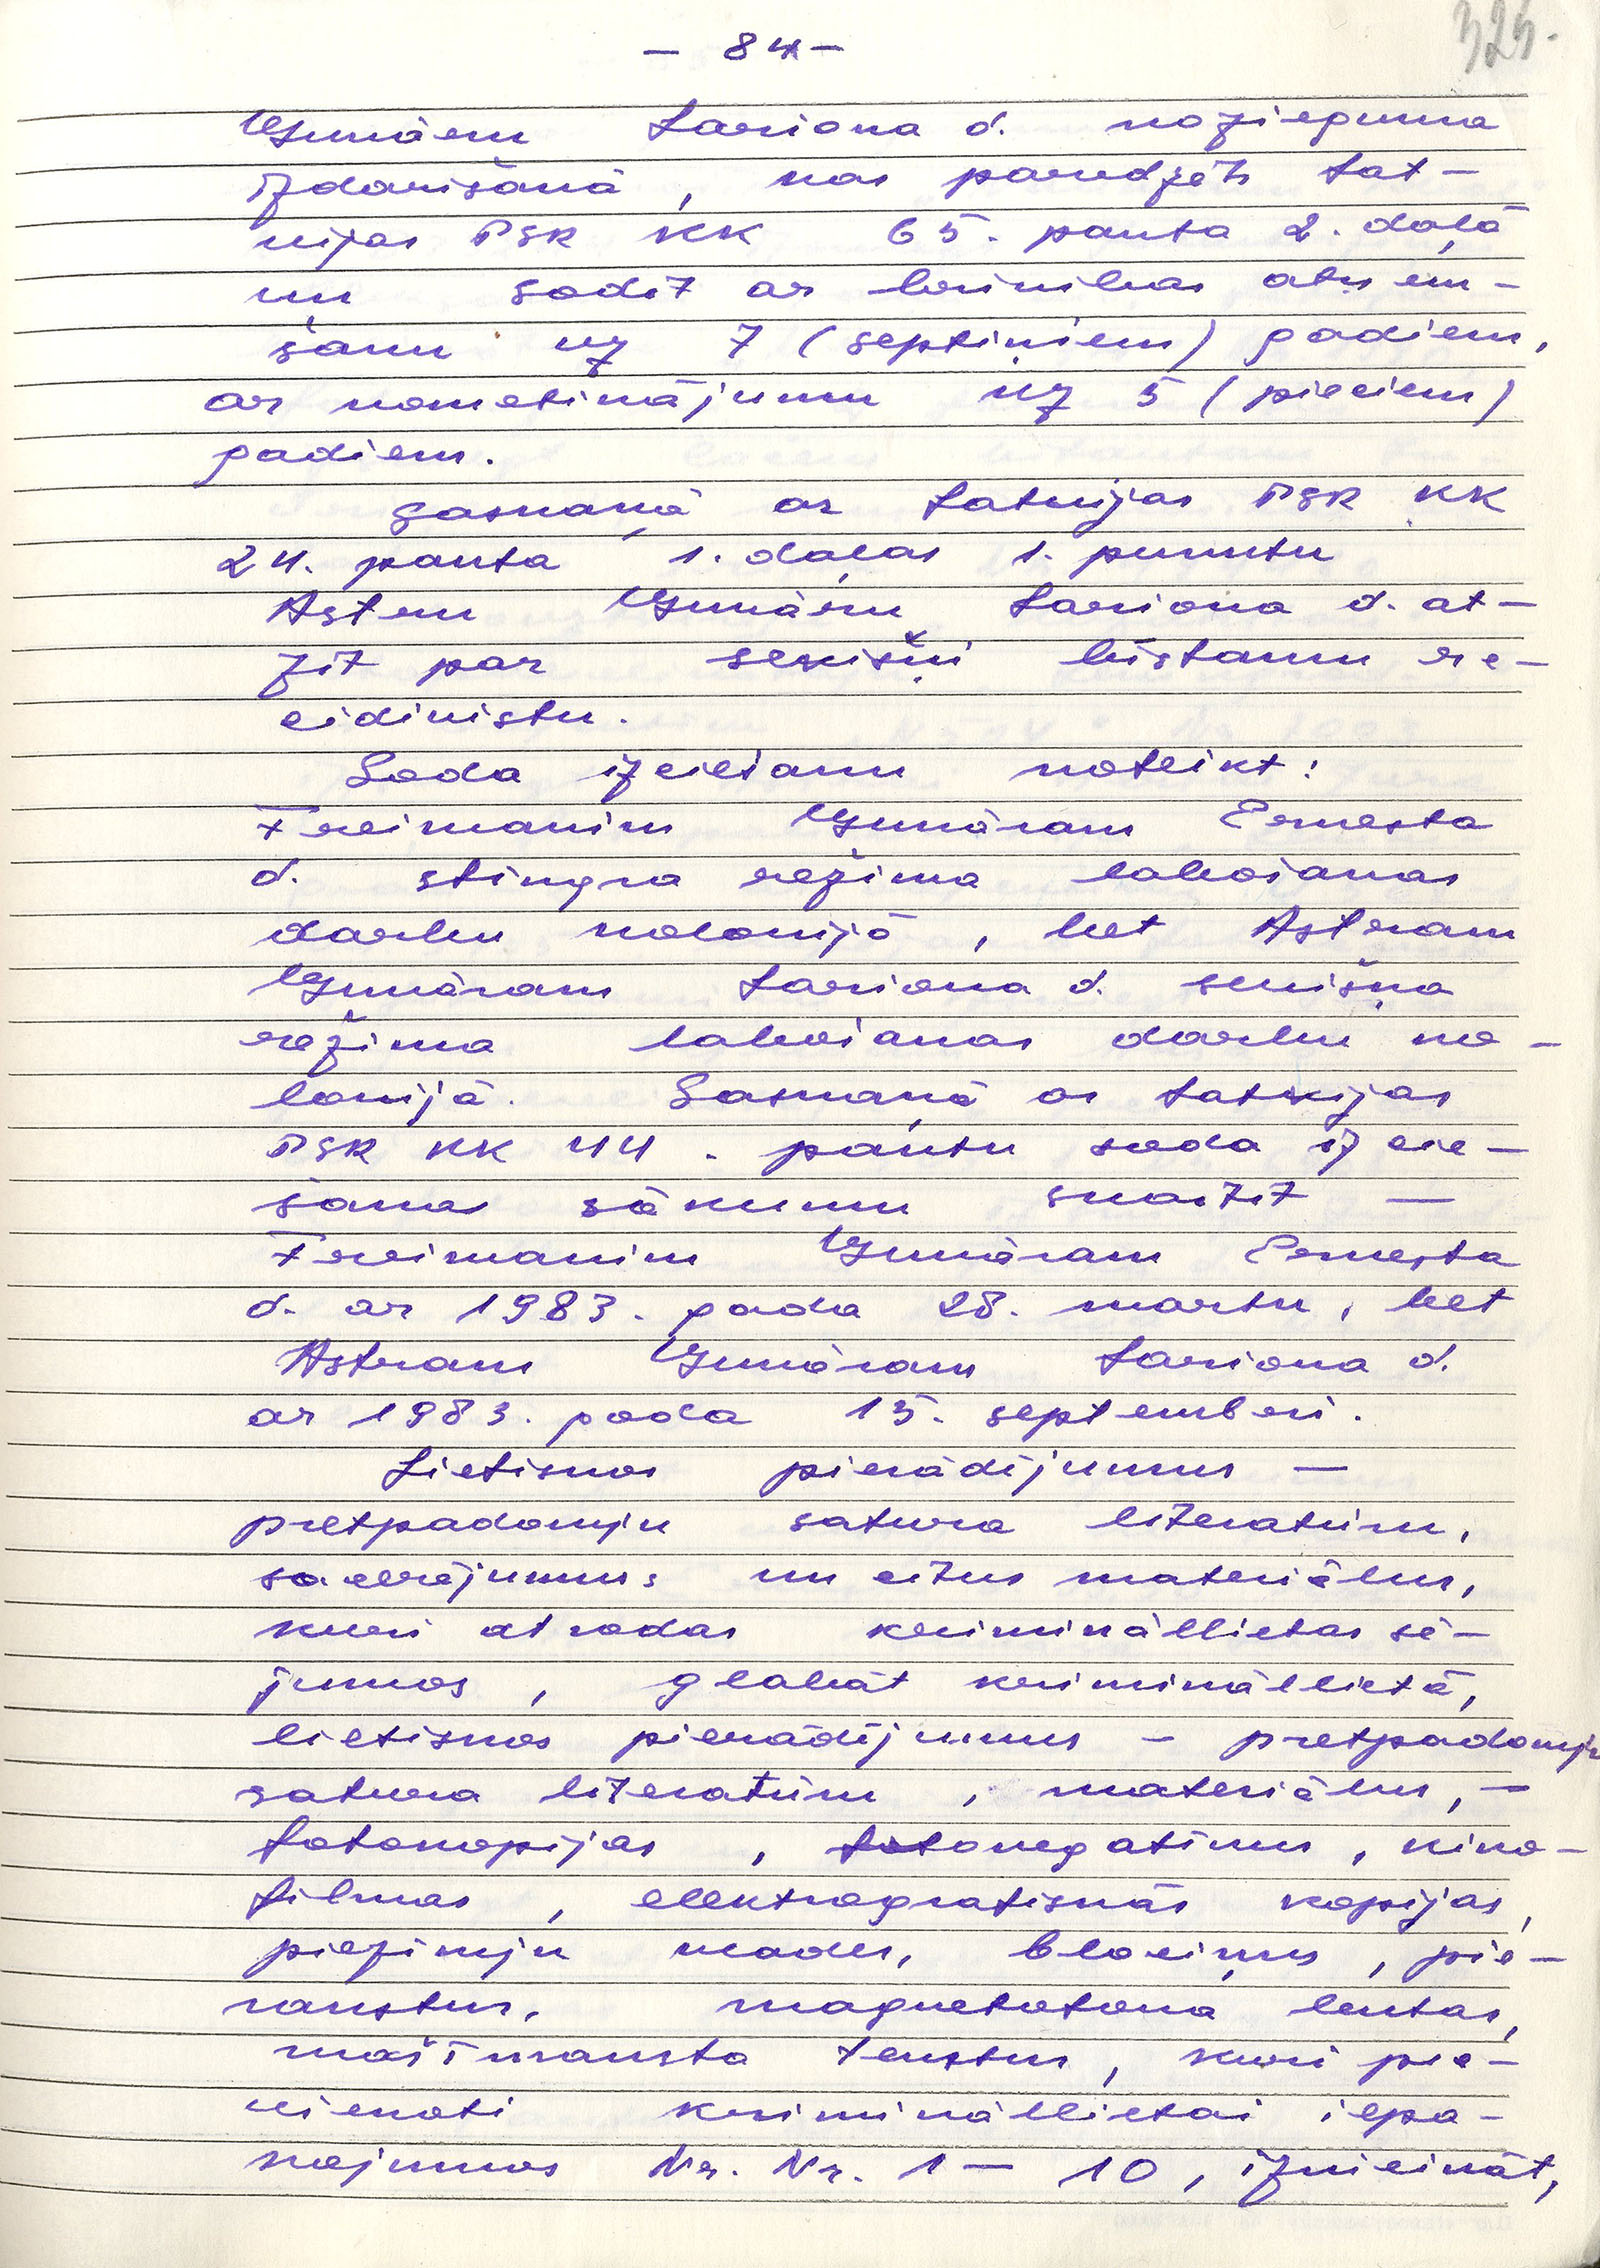 - 84 -
325.
Gunāru Lariona d. nozieguma
izdarīšanā, kas paredzēts Lat-
vijas PSR KK 65. panta 2. daļā
un sodīt ar brīvības atņem-
šanu uz 7 (septiņiem) gadiem,
ar nometinājumu uz 5 (pieciem)
gadiem.
Saskaņā ar Latvijas PSR KK
24. panta 1. daļas 1. punktu
Astru Gunāru Lariona d. at-
zīt par sevišķi bīstamu re-
cidivistu.
Soda izciešanu noteikt:
Freimanim Gunāram Ernesta
d. stingra režīma labošanas
darbu kolonijā, bet Astram
Gunāram Lariona d. sevišķa
režīma labošanas darbu ko-
lonijā. Saskaņā ar Latvijas
PSR KK 44. pantu soda izcie-
šanas sākumu skaitīt —
Freimanim Gunāram Ernesta
d. ar 1983. gada 28. martu, bet
Astram Gunāram Lariona d.
ar 1983. gada 15. septembri.
Lietiskos pierādījumus —
pretpadomju satura literatūru,
sacerējumus un citus materiālus,
kuri atrodas krimināllietas sē-
jumos, glabāt krimināllietā,
lietiskos pierādījumus - pretpadomju
satura literatūru, materiālus, -
fotokopijas, fotonegatīvus, kino-
filmas, elektrografiskās kopijas,
piezīmju klades, blociņus, pie-
rakstus, magnetofona lentas,
mašīnraksta tekstus, kuri pie-
vienoti krimināllietai iepa-
kojumos Nr. Nr. 1 - 10, iznīcināt,